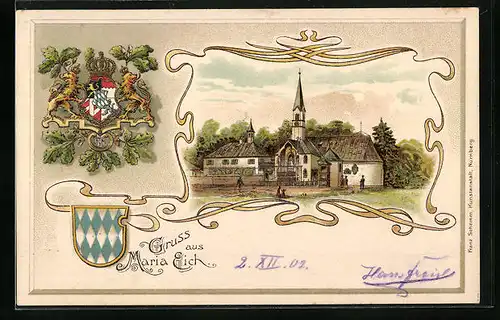 Gruss
aus
Maria Eich.
2. XII. 02.
Hans
Franz Schemm, Kunstanstalt, Nürnberg